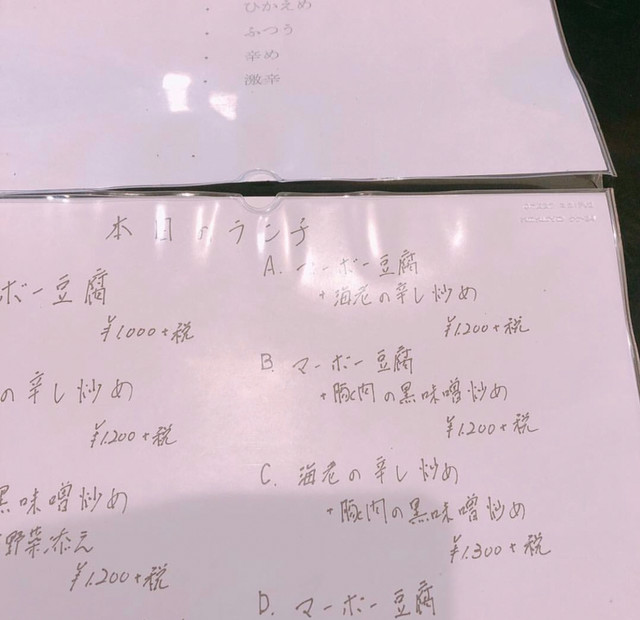 ひかえめ
ふつう
辛め
激辛
本日のランチ
ボー豆腐
¥1,000+税
の辛し炒め
¥1,200+税
黒味噌炒め
野菜添え
¥1,200+税
A. マーボー豆腐
+海老の辛し炒め
¥1,200+税
B. マーボー豆腐
+豚肉の黒味噌炒め
¥1,200+税
C. 海老の辛し炒め
+豚肉の黒味噌炒め
¥1,300+税
D. マーボー豆腐